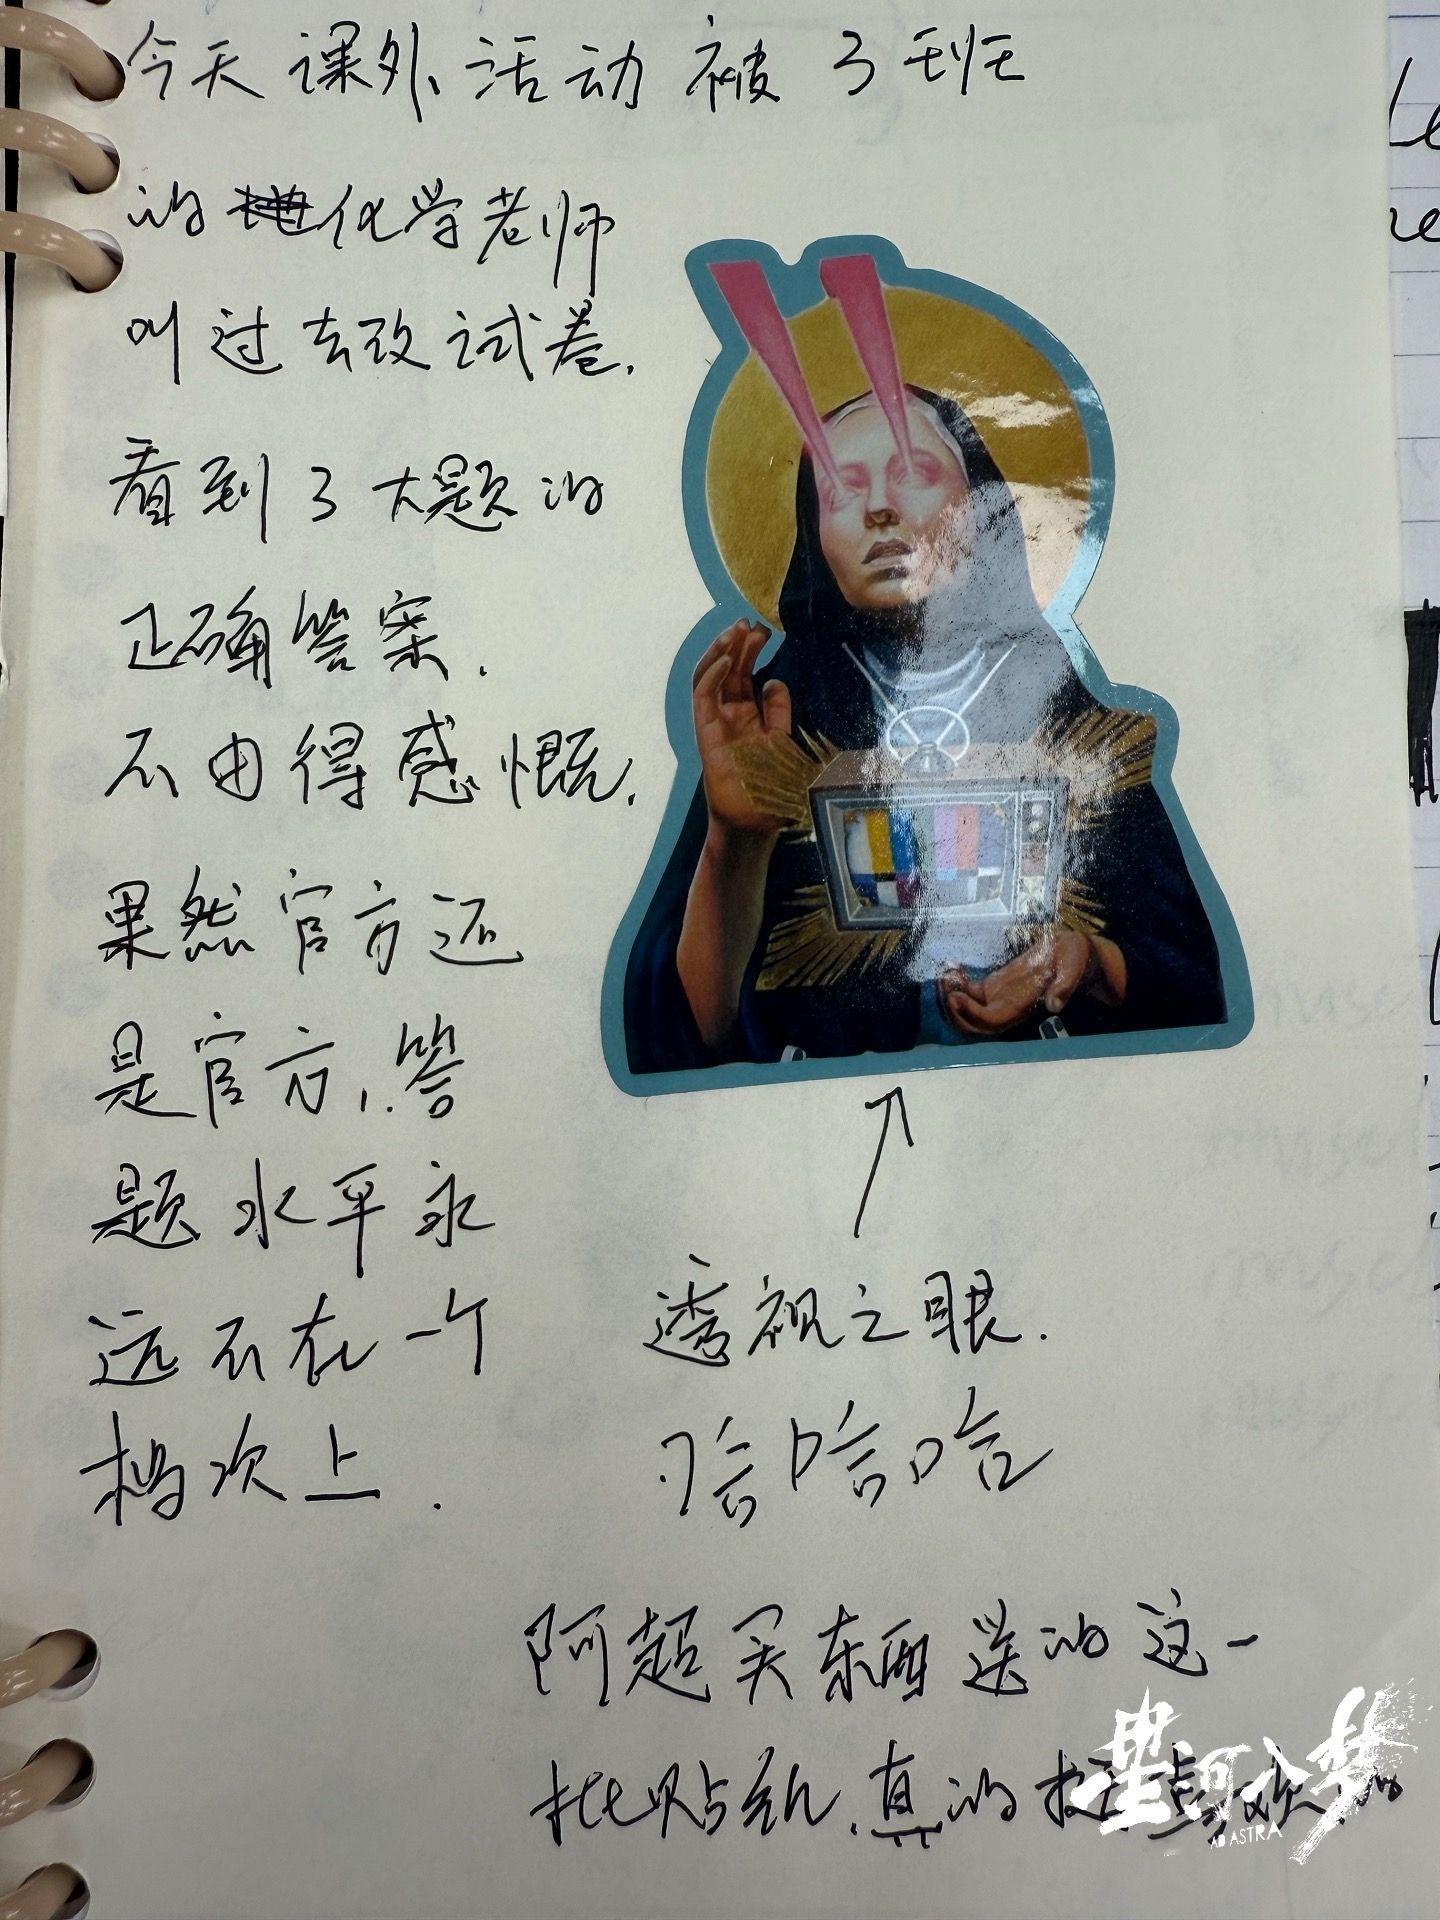 今天课外活动被3班
的化学老师
叫过去改试卷.
看到了大题的
正确答案.
不由得感慨.
果然官方还
是官方,答
题水平永
远不在一个
档次上.
透视之眼.
哈哈哈
阿超买东西送的这一
批贴纸.真的挺喜欢的
星河入梦
AD ASTRA